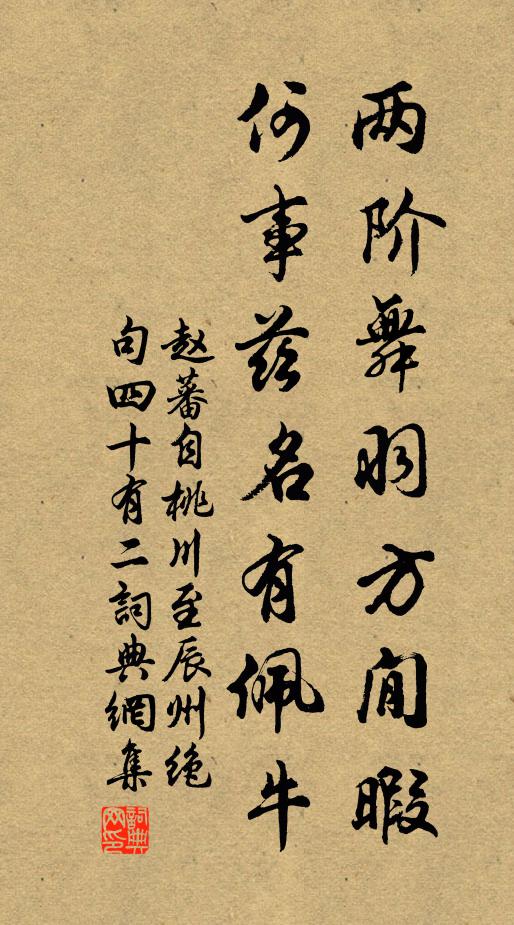 两阶舞羽方闲暇
何事兹名有佩牛
赵蕃自桃川至辰州绝
句四十有二詞典網集
詞典网印